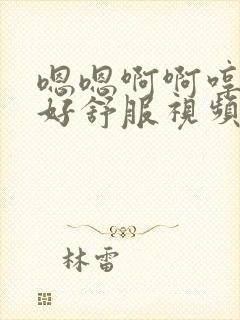 嗯嗯啊啊哼
好舒服視頻
林雷